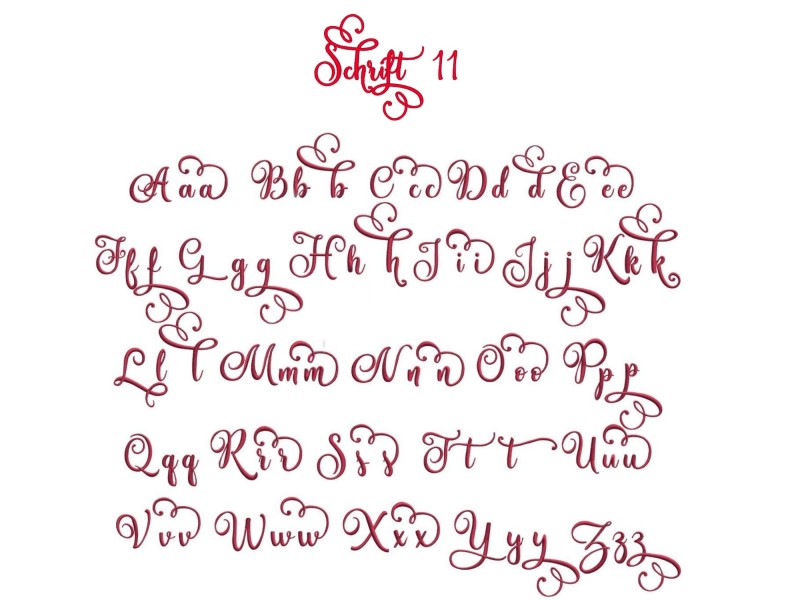 Schrift 11
Aaa Bbb Ccc Ddd Eee
Fff Ggg Hhh Iii Jjj Kkk
Lll Mmm Nnn Ooo Ppp
Qqq Rrr Sss Ttt Uuu
Vvv Www Xxx Yyy Zzz